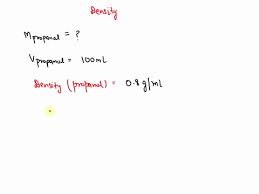 Density
M propanal = ?
V propanal = 100mL
Density (propanal) = 0.8 g/mL